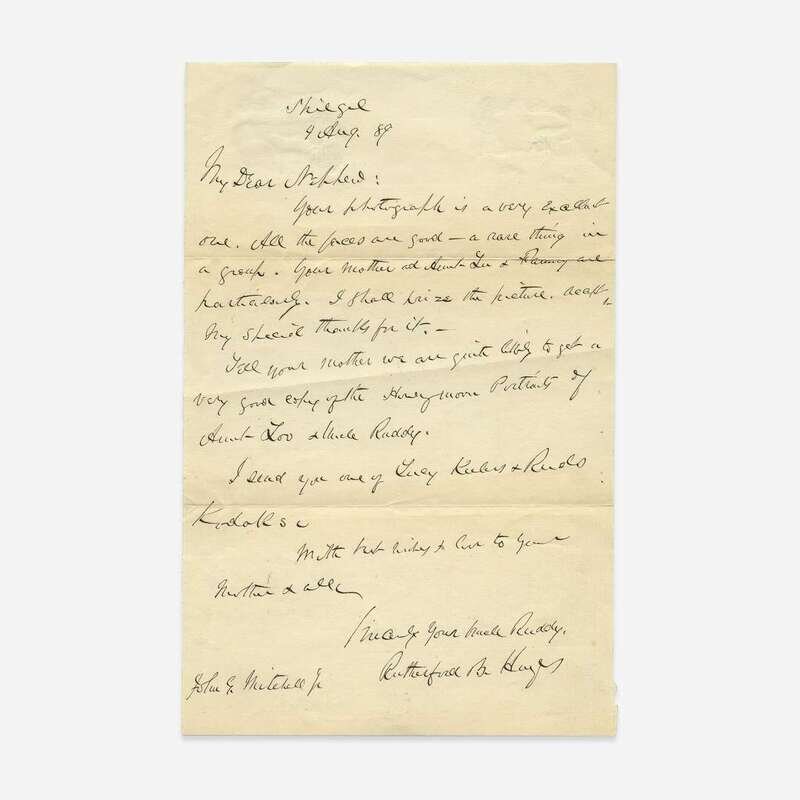 Spiegel
4 Aug. 89
My Dear Nephew:
Your photograph is a very excellent
one. All the faces are good — a rare thing in
a group. Your mother and Aunt Lu & Fanny are
particularly. I shall prize the picture. Accept
my special thanks for it. —
Tell your mother we are quite likely to get a
very good copy of the Honeymoon Portraits of
Aunt Loo & Uncle Ruddy.
I send you one of Lucy Keelers & Ruds
Kodaks.
With best wishes & love to your
Mother & all
Sincerely Your Uncle Ruddy.
Rutherford B. Hayes
John G. Mitchell Jr